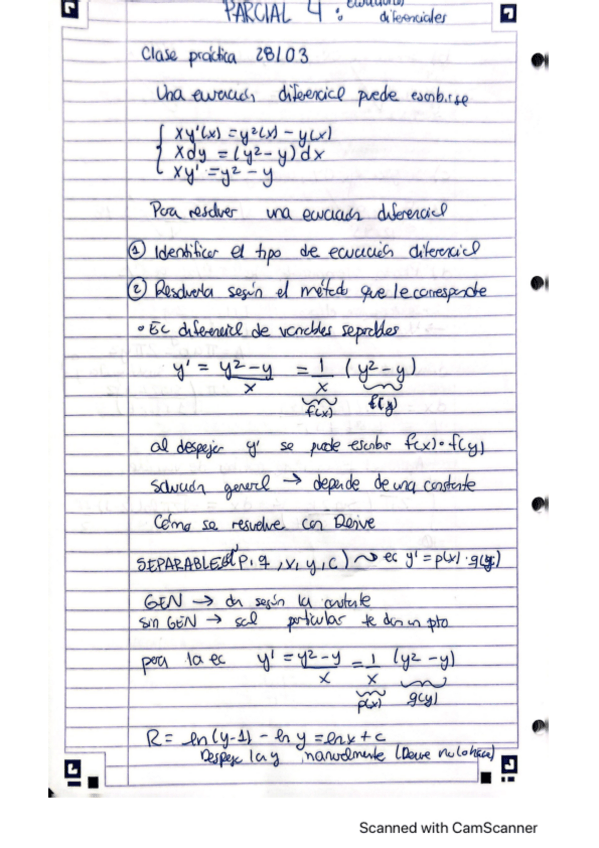 PARCIAL 4: Ecuaciones diferenciales
Clase práctica 28/03
Una ecuación diferencial puede escribirse
xy'(x) = y²(x) - y(x)
xdy = (y² - y) dx
xy' = y² - y
Para resolver una ecuación diferencial
① Identificar el tipo de ecuación diferencial
② Resolverla según el método que le corresponde
• Ec diferencial de variables separables
y' = y² - y / x = 1/x (y² - y)
f(x) f(y)
al despejar y' se puede escribir f(x) • f(y)
Solución general → depende de una constante
Cómo se resuelve con Derive
SEPARABLE (p, q, x, y, c) ~> ec y' = p(x) · g(y)
GEN → da según la constante
sin GEN → sol particular te dan un pto
para la ec y' = y² - y / x = 1/x (y² - y)
p(x) g(y)
R = ln(y-1) - ln y = ln x + c
Despeje la y manualmente (Derive no lo hace)
Scanned with CamScanner